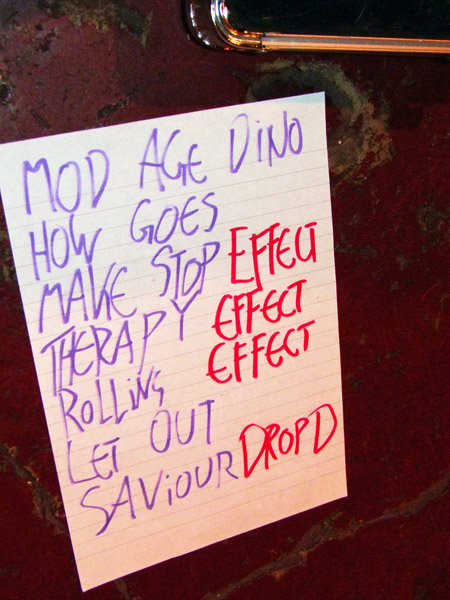 MOD AGE DINO
HOW GOES
MAKE STOP EFFECT
THERAPY EFFECT
ROLLING EFFECT
LET OUT
SAVIOUR DROP D